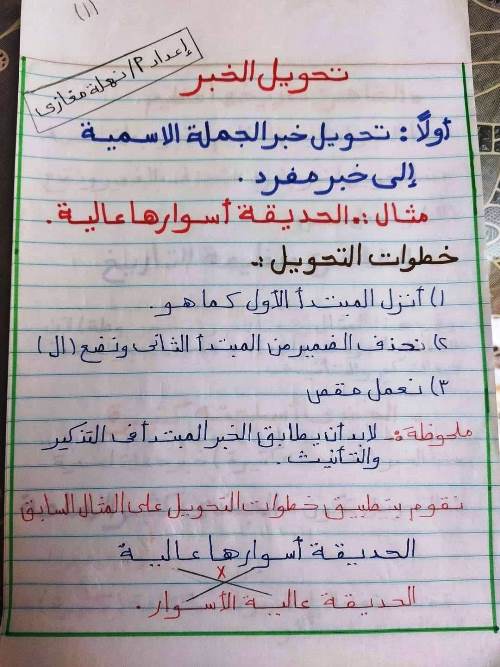 (١)
إعداد م/ نهلة مغازى
تحويل الخبر
أولاً : تحويل خبر الجملة الاسمية
إلى خبر مفرد .
مثال :. الحديقة أسوارها عالية .
خطوات التحويل :.
١) أنزل المبتدأ الأول كما هو .
٢) نحذف الضمير من المبتدأ الثانى ونضع (ال)
٣) نعمل مقص
ملحوظة :. لابد أن يطابق الخبر المبتدأ فى التذكير
والتأنيث .
نقوم بتطبيق خطوات التحويل على المثال السابق
الحديقة أسوارها عالية
x
الحديقة عالية الأسوار .